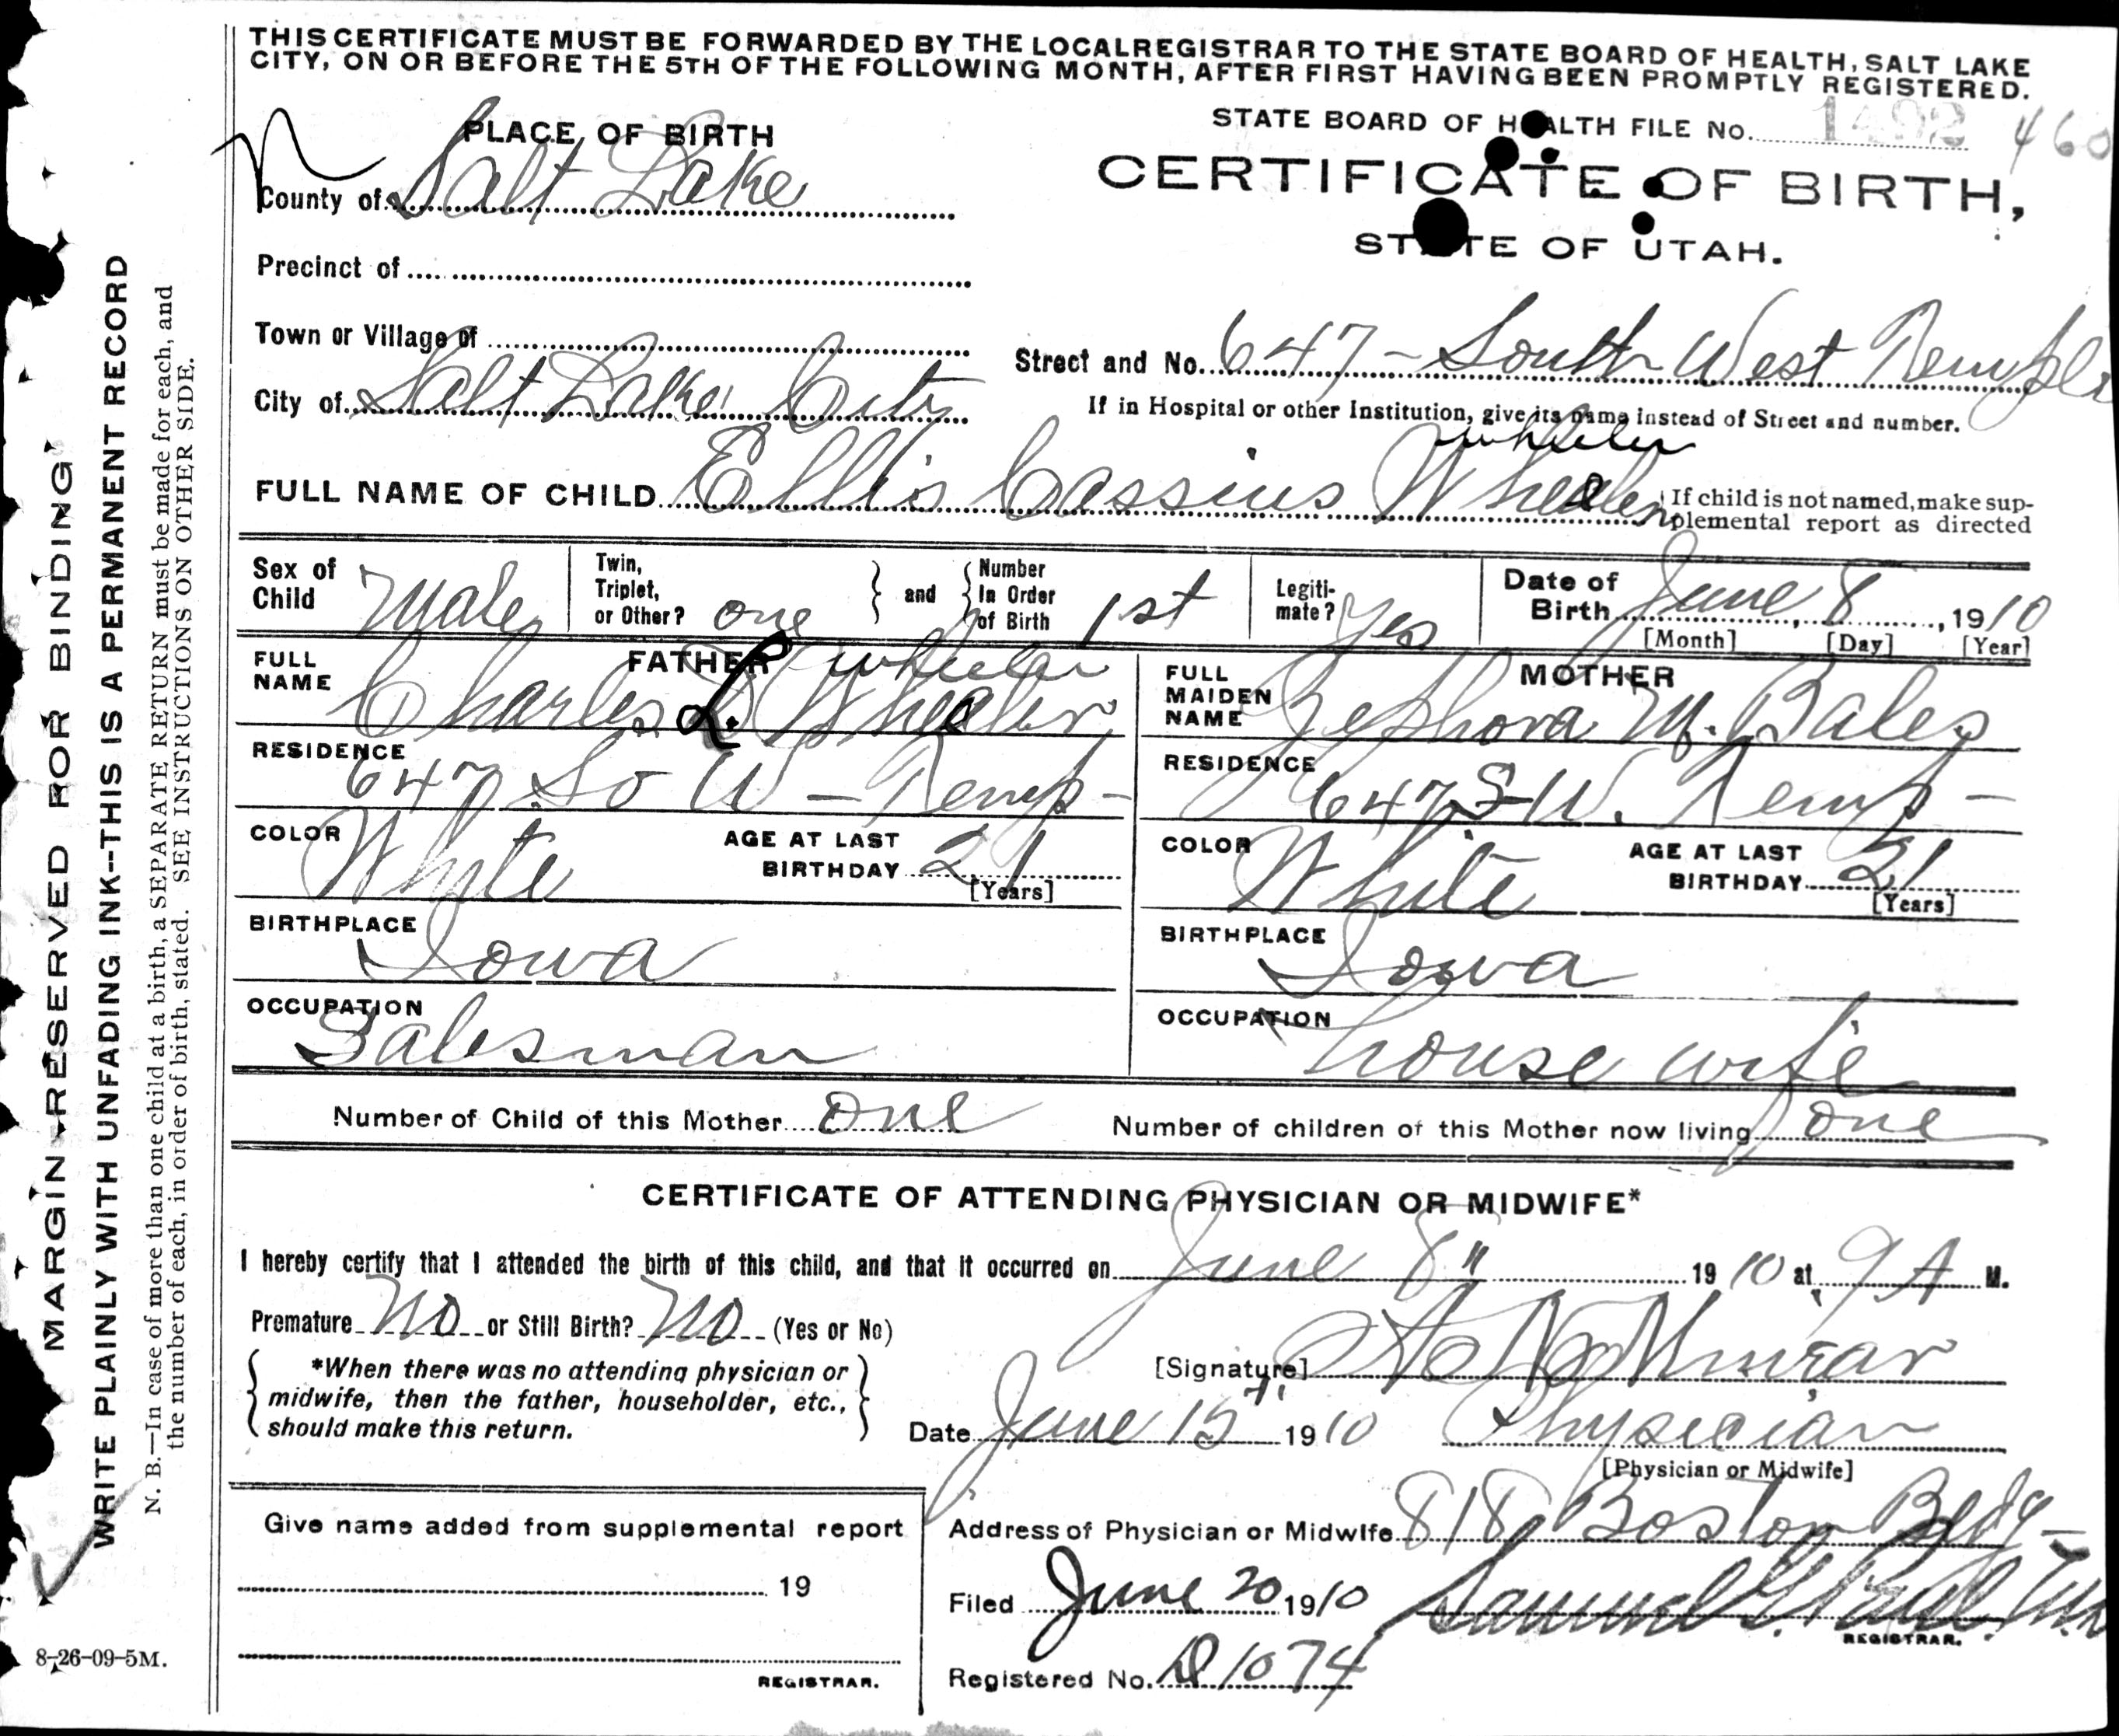 THIS CERTIFICATE MUST BE FORWARDED BY THE LOCAL REGISTRAR TO THE STATE BOARD OF HEALTH, SALT LAKE
CITY, ON OR BEFORE THE 5TH OF THE FOLLOWING MONTH, AFTER FIRST HAVING BEEN PROMPTLY REGISTERED.
STATE BOARD OF HEALTH FILE No. 1492 460
PLACE OF BIRTH
CERTIFICATE OF BIRTH,
STATE OF UTAH.
County of Salt Lake
Precinct of
Town or Village of
Street and No. 647 - South West Temple
City of Salt Lake City
If in Hospital or other Institution, give its name instead of Street and number.
wheeler
FULL NAME OF CHILD Ellis Cassius Whealen
If child is not named, make sup-
plemental report as directed
Sex of Child Male
Twin, Triplet, or Other? one
and
Number In Order of Birth 1st
Legiti-mate? Yes
Date of Birth June 8, 1910
[Month] [Day] [Year]
FATHER
wheeler
FULL NAME Charles L. Whealer
RESIDENCE
647 So W - Temp -
COLOR White
AGE AT LAST BIRTHDAY 21
[Years]
BIRTHPLACE
Iowa
OCCUPATION
Salesman
MOTHER
FULL MAIDEN NAME Zephora M. Bales
RESIDENCE
647 S W. Temp -
COLOR White
AGE AT LAST BIRTHDAY 21
[Years]
BIRTHPLACE
Iowa
OCCUPATION
house wife
Number of Child of this Mother one
Number of children of this Mother now living one
CERTIFICATE OF ATTENDING PHYSICIAN OR MIDWIFE*
I hereby certify that I attended the birth of this child, and that it occurred on June 8" 1910 at 9 A M.
Premature No or Still Birth? No (Yes or No)
*When there was no attending physician or
midwife, then the father, householder, etc.,
should make this return.
[Signature]
Date June 15th 1910 Physician
[Physician or Midwife]
Give name added from supplemental report
19
REGISTRAR.
Address of Physician or Midwife 818 Boston Bldg -
Filed June 20 1910 Samuel G. Paul
REGISTRAR.
Registered No. D 1074
MARGIN RESERVED FOR BINDING
WRITE PLAINLY WITH UNFADING INK--THIS IS A PERMANENT RECORD
N. B.—In case of more than one child at a birth, a SEPARATE RETURN must be made for each, and
the number of each, in order of birth, stated. SEE INSTRUCTIONS ON OTHER SIDE.
8-26-09-5M.